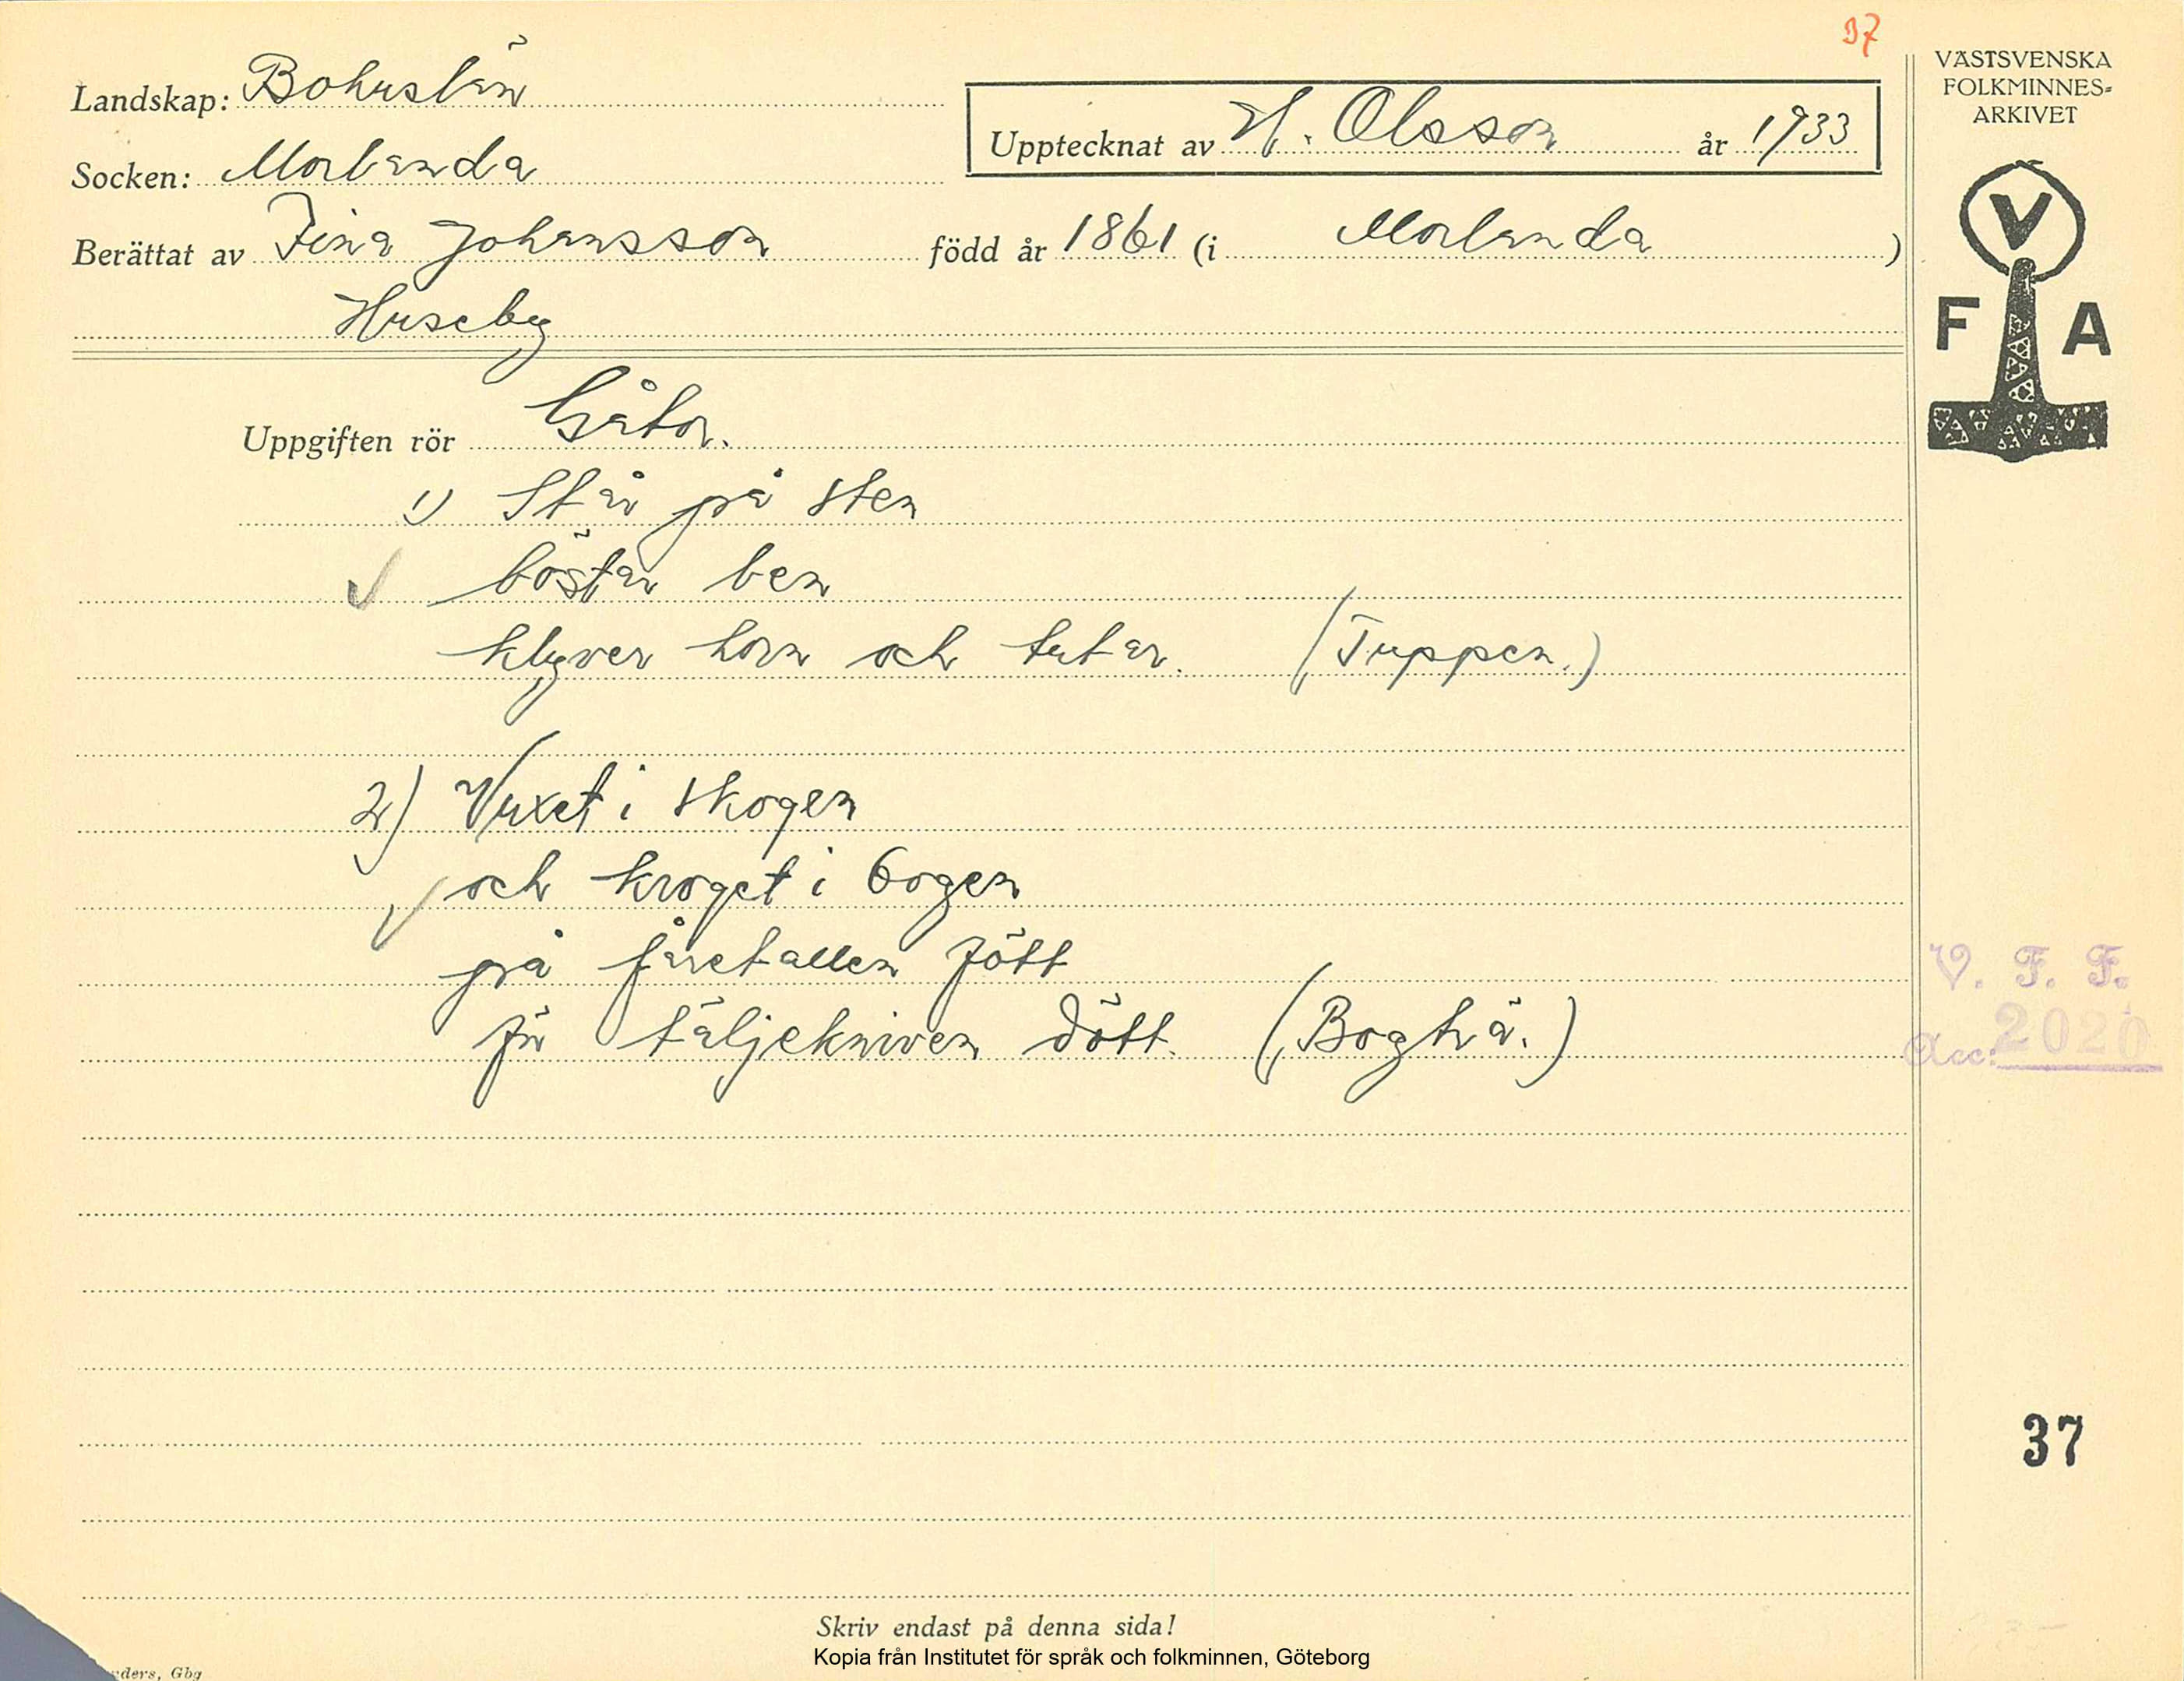 37
VÄSTSVENSKA
FOLKMINNES=
ARKIVET
Landskap: Bohuslän
Upptecknat av H. Olsson år 1933
Socken: Morlanda
Berättat av Fina Johansson född år 1861 (i Morlanda)
Huseby
V
F A
Uppgiften rör Gåtor.
1) Står på sten
böstar ben
klyver horn och tutar. (Tuppen.)
2) Vuxet i skogen
och kroget i bogen
på fåretallen fött
för täljekniven dött. (Bogträ.)
V. F. F.
Acc: 2020
37
Skriv endast på denna sida!
Kopia från Institutet för språk och folkminnen, Göteborg
Gbg